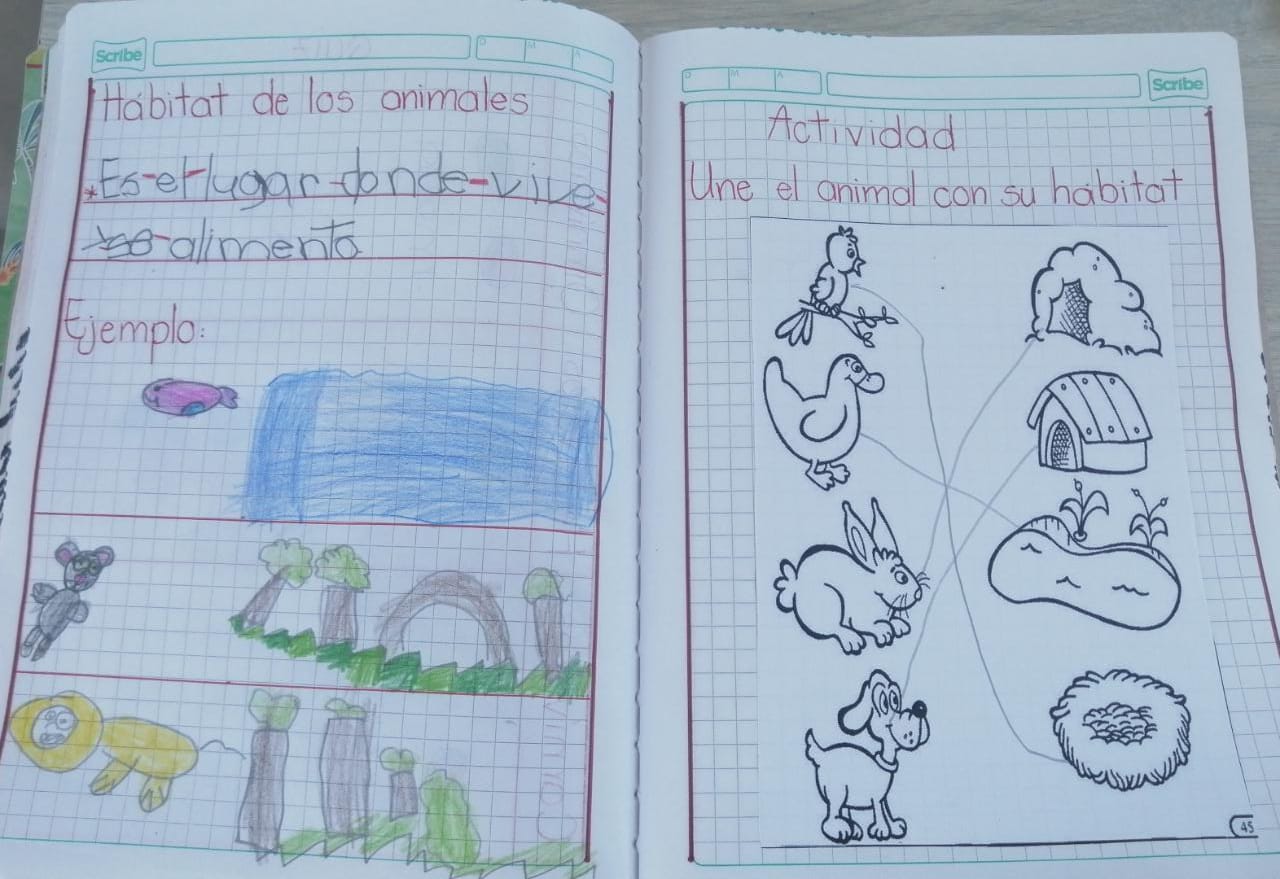 Scribe
D M A
Hábitat de los animales
*Es-el-lugar-donde-vive-
alimenta
Ejemplo:
D M A
Scribe
Actividad
Une el animal con su hábitat
45